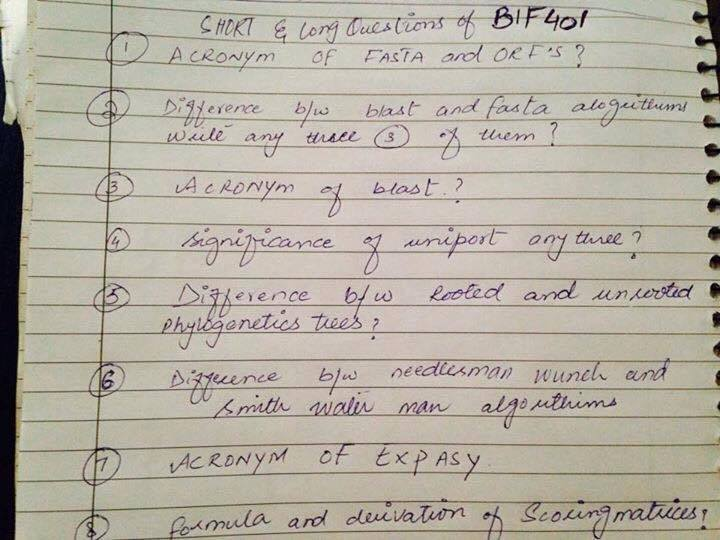 SHORT & Long Questions of BIF401
1 ACRONYM OF FASTA and ORF'S ?
2 Difference b/w blast and fasta alogrithums
write any three 3 of them ?
3 ACRONYM of blast.?
4 significance of uniport any three ?
5 Difference b/w Rooted and unrooted
phylogenetics trees ?
6 Difference b/w needlesman wunch and
smith water man algorithims
7 ACRONYM OF EXPASY
8 formula and derivation of Scoring matrices?